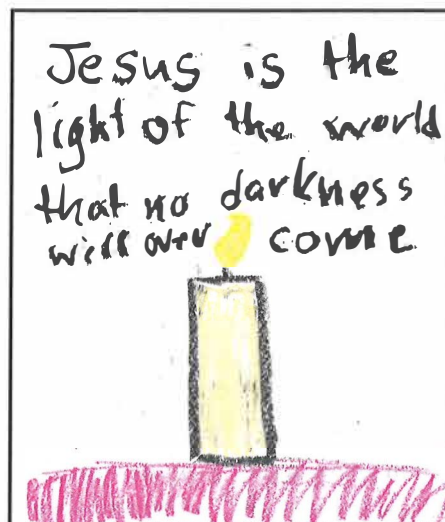 Jesus is the
light of the world
that no darkness
will over come